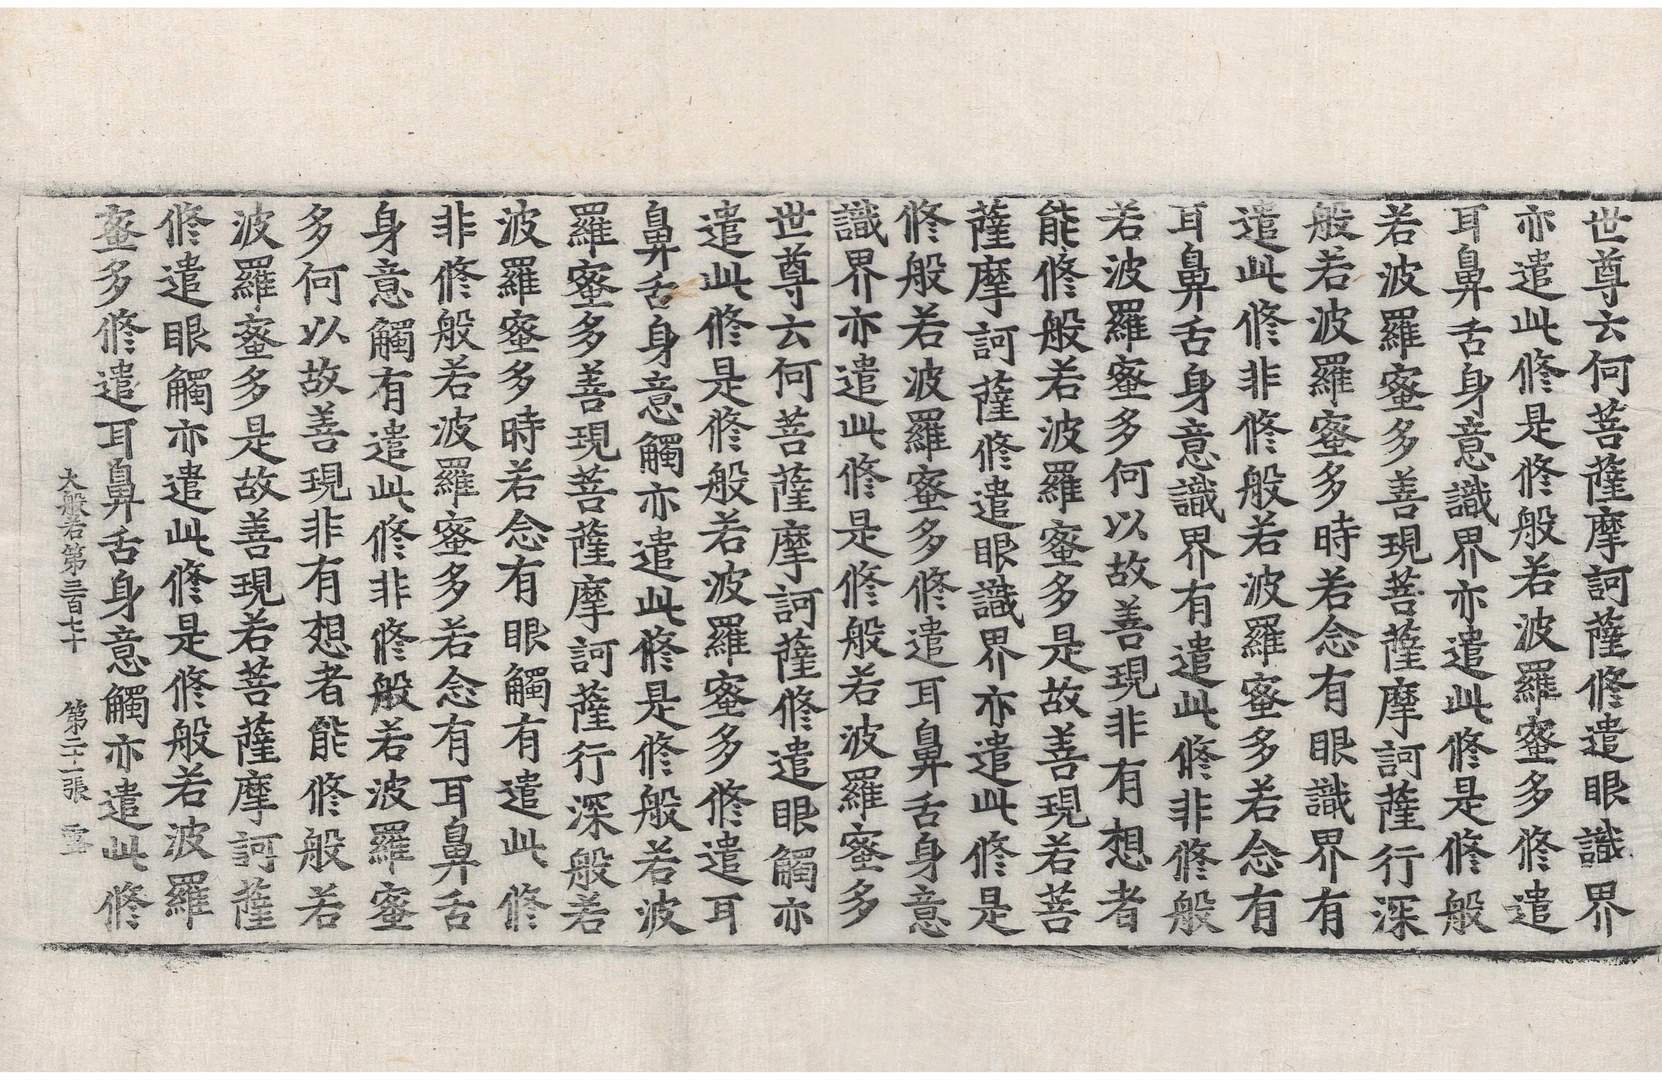 世尊云何菩薩摩訶薩修遣眼識界
亦遣此修是修般若波羅蜜多修遣
耳鼻舌身意識界亦遣此修是修般
若波羅蜜多善現菩薩摩訶薩行深
般若波羅蜜多時若念有眼識界有
遣此修非修般若波羅蜜多若念有
耳鼻舌身意識界有遣此修非修般
若波羅蜜多何以故善現非有想者
能修般若波羅蜜多是故善現若菩
薩摩訶薩修遣眼識界亦遣此修是
修般若波羅蜜多修遣耳鼻舌身意
識界亦遣此修是修般若波羅蜜多
世尊云何菩薩摩訶薩修遣眼觸亦
遣此修是修般若波羅蜜多修遣耳
鼻舌身意觸亦遣此修是修般若波
羅蜜多善現菩薩摩訶薩行深般若
波羅蜜多時若念有眼觸有遣此修
非修般若波羅蜜多若念有耳鼻舌
身意觸有遣此修非修般若波羅蜜
多何以故善現非有想者能修般若
波羅蜜多是故善現若菩薩摩訶薩
修遣眼觸亦遣此修是修般若波羅
蜜多修遣耳鼻舌身意觸亦遣此修
大般若第三百七十 第二十一張